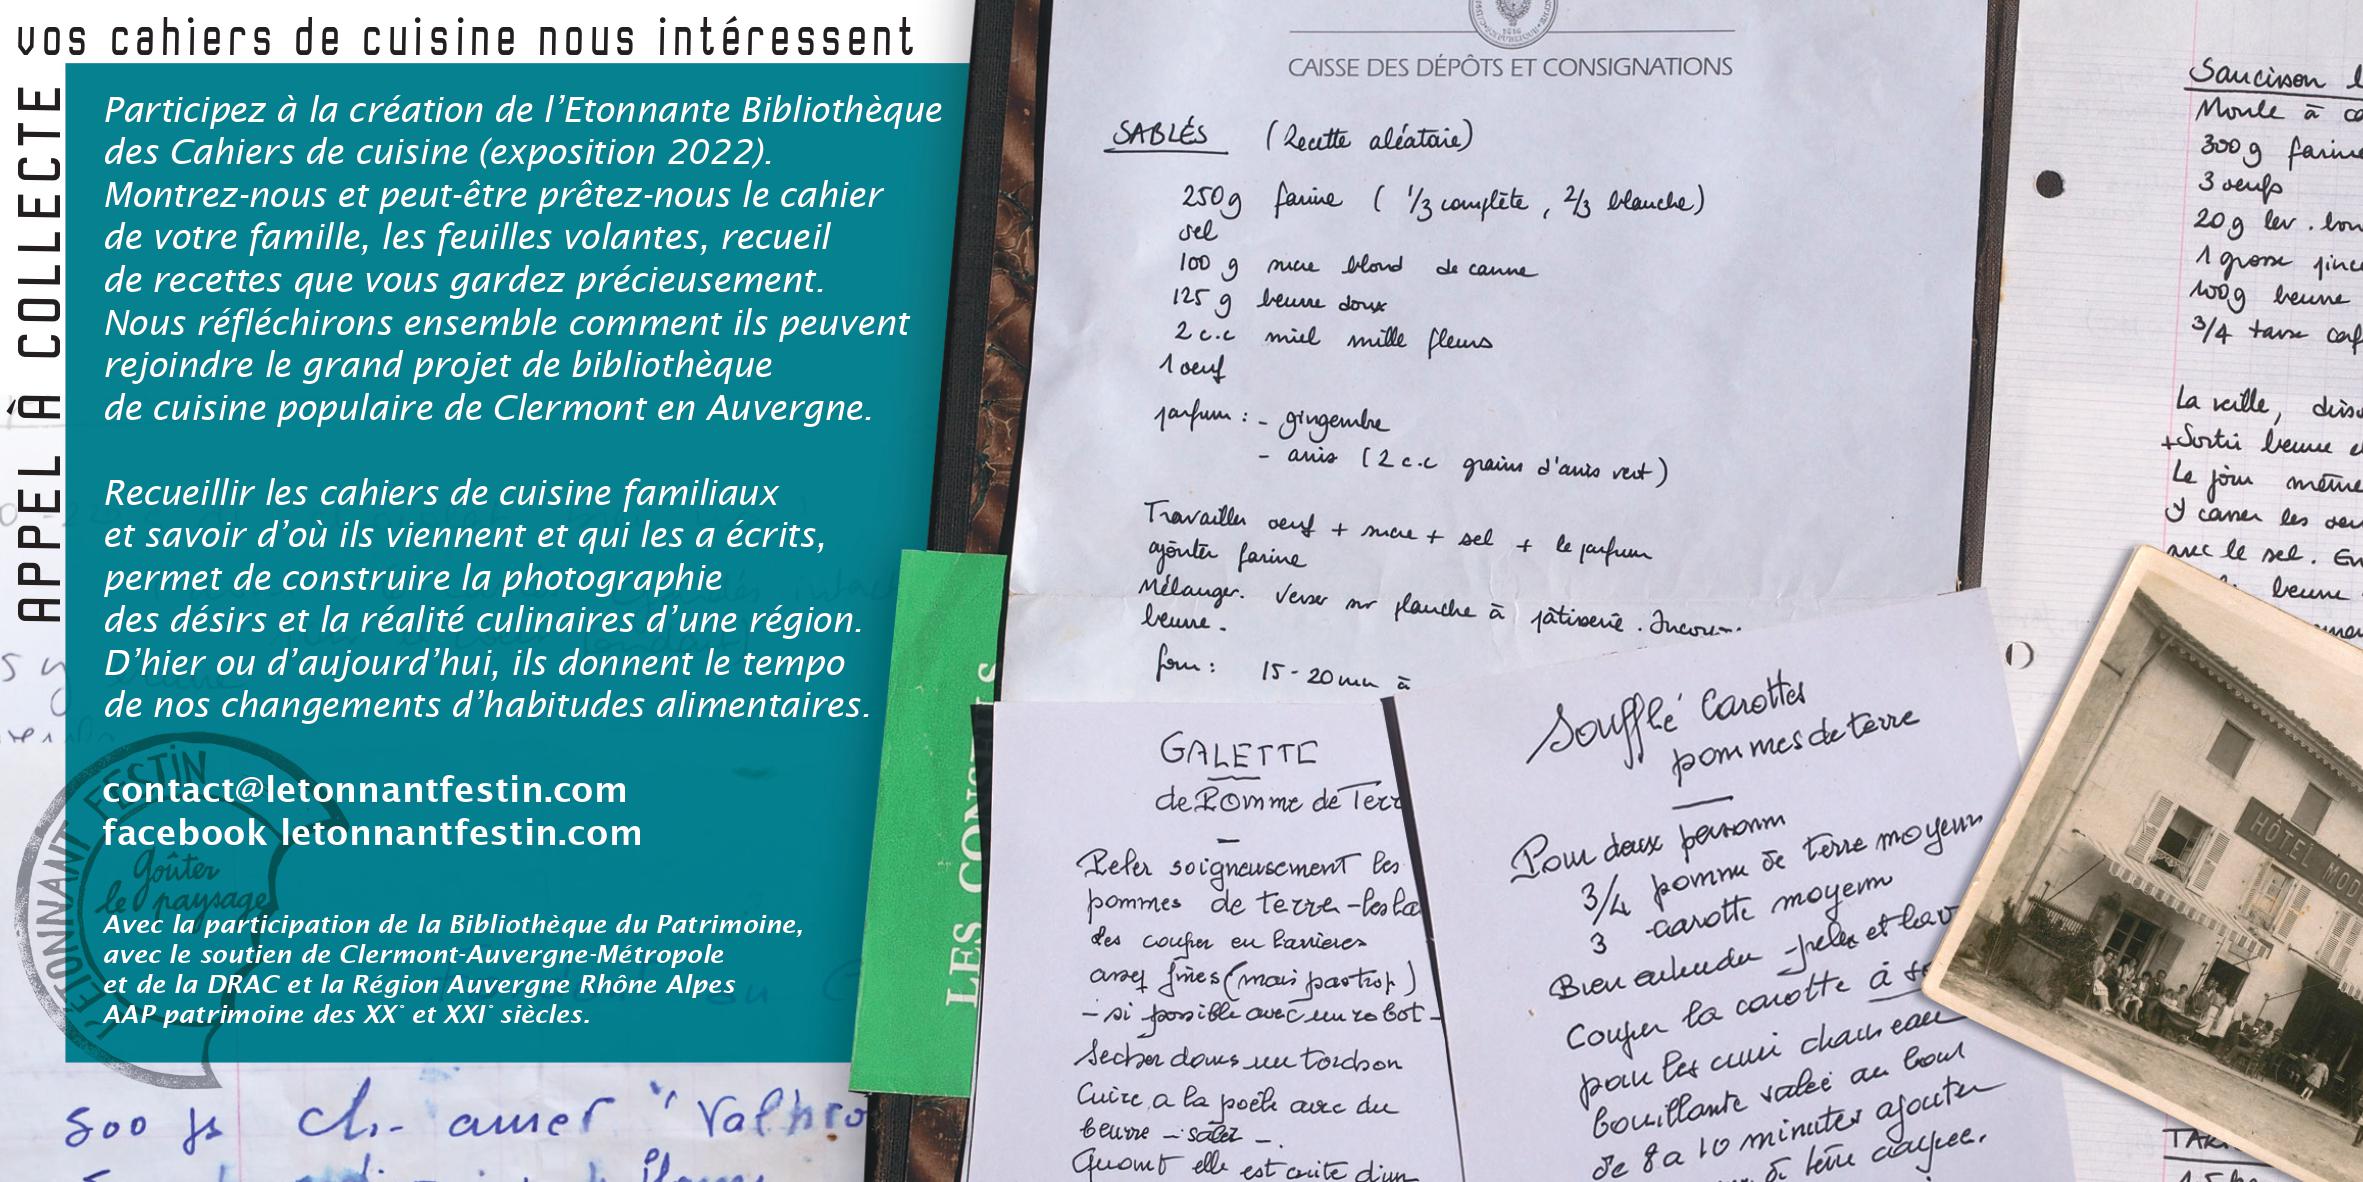 vos cahiers de cuisine nous intéressent
APPEL À COLLECTE
Participez à la création de l'Etonnante Bibliothèque
des Cahiers de cuisine (exposition 2022).
Montrez-nous et peut-être prêtez-nous le cahier
de votre famille, les feuilles volantes, recueil
de recettes que vous gardez précieusement.
Nous réfléchirons ensemble comment ils peuvent
rejoindre le grand projet de bibliothèque
de cuisine populaire de Clermont en Auvergne.
Recueillir les cahiers de cuisine familiaux
et savoir d'où ils viennent et qui les a écrits,
permet de construire la photographie
des désirs et la réalité culinaires d'une région.
D'hier ou d'aujourd'hui, ils donnent le tempo
de nos changements d'habitudes alimentaires.
contact@letonnantfestin.com
facebook letonnantfestin.com
Avec la participation de la Bibliothèque du Patrimoine,
avec le soutien de Clermont-Auvergne-Métropole
et de la DRAC et la Région Auvergne Rhône Alpes
AAP patrimoine des XX° et XXI° siècles.
L'ETONNANT FESTIN
Goûter
le paysage
500 gr ch. amer "Valhro
CAISSE DES DÉPÔTS ET CONSIGNATIONS
SABLÉS (Recette aléatoire)
250g farine ( 1/3 complète, 2/3 blanche)
sel
100 g sucre blond de canne
125 g beurre doux
2 c.c miel mille fleurs
1 oeuf
parfum : - gingembre
- anis (2 c.c grains d'anis vert)
Travailler oeuf + sucre + sel + le parfum
ajouter farine
Mélanger. Verser sur planche à pâtisserie. Incorp
beurre.
four : 15-20 mn à
LES CONS
GALETTE
de Pomme de Terr
Peler soigneusement les
pommes de terre - les la
les couper en lanières
assez fines (mais pas trop)
- si possible avec un robot -
Secher dans un torchon
Cuire a la poêle avec du
beurre - salez -.
Quant elle est cuite d'un
Soufflé Carottes
pommes de terre
Pour deux personn
3/4 pomme de terre moyenn
3 carotte moyenn
Bien entendu - peler et lav
Couper la carotte à
pour les cuire chacu eau
bouillante salée au bout
de 8 a 10 minutes ajouter
de terre coupée.
Saucisson
Moule à ca
300g farine
3 oeufs
20g lev.
1 grosse pince
100g beurre
3/4 tasse
La veille,
+Sortir beurre
Le jour même
y casser les oeu
avec le sel. En
beurre
HÔTEL MOD
TAR